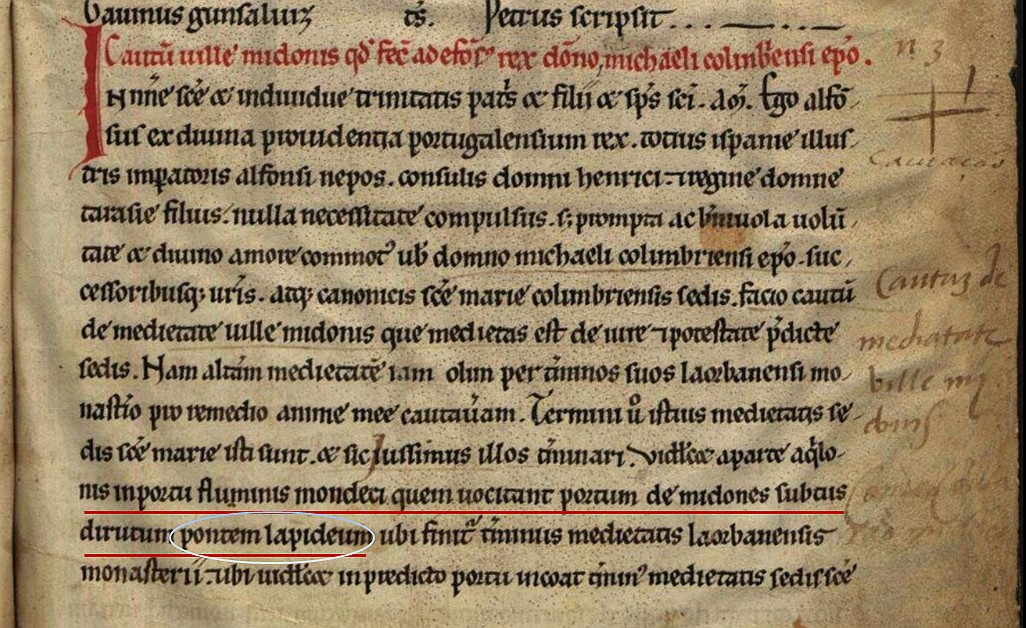 Vaunus gunsaluiz ts. Petrus scripsit...
Cautũ uille midonis qď fec̃ adefons᷒ rex dõno, michaeli colinb̃ensi ep̃o.
IN nñe sc̃e ⁊ indiuidue trinitatis pat̃s ⁊ filii ⁊ sp̃s sc̃i. Am̃. Ego alfõ
sus ex diuina prouidentia portugalensium rex. totius ispanie illus
tris imp̃atoris alfonsi nepos. consulis domni henrici ⁊ regine domne
tarasie filius. nulla necessitate compulsus. s; prompta ac b̃niuola uolũ
tate ⁊ diuino amore commot᷒ uob̃ domno michaeli colimbriensi ep̃o. suc
cessoribusq; ur̃is. atq; canonicis sc̃e marie colimbriensis sedis. facio cautũ
de medietate uille midonis que medietas est de iure ⁊ potestate p̃dicte
sedis. Nam altãm medietatẽ iam olim per t̃minos suos laorbanensi mo
nast̃io pro remedio anime mee cautaũam. Termini ũ istius medietatis se
dis sc̃e marie isti sunt. ⁊ sic Iussimus illos t̃minari. Videl̃cet aparte aq̃lo
nis inportu fluminis mondeci quem uocitant portum de midones subtus
dirutum pontem lapideum ubi finit᷒ t̃minus medietatis laorbanensis
monasterii. ⁊ ubi uidel̃cet inpredicto portu incoat t̃min᷒ medietatis sedis sc̃e
n 3
Cautaz de
medietate
ville mi
donis